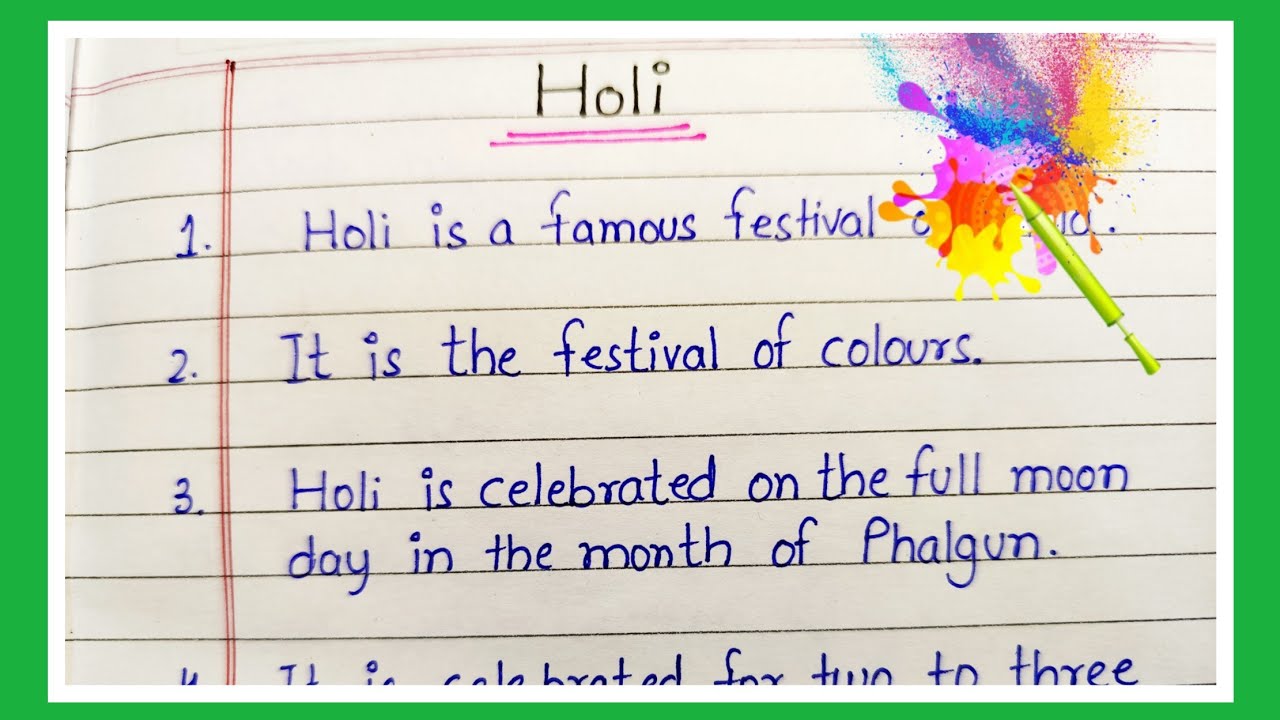 Holi
1. Holi is a famous festival
2. It is the festival of colours.
3. Holi is celebrated on the full moon
day in the month of Phalgun.
4. It is celebrated for two to three